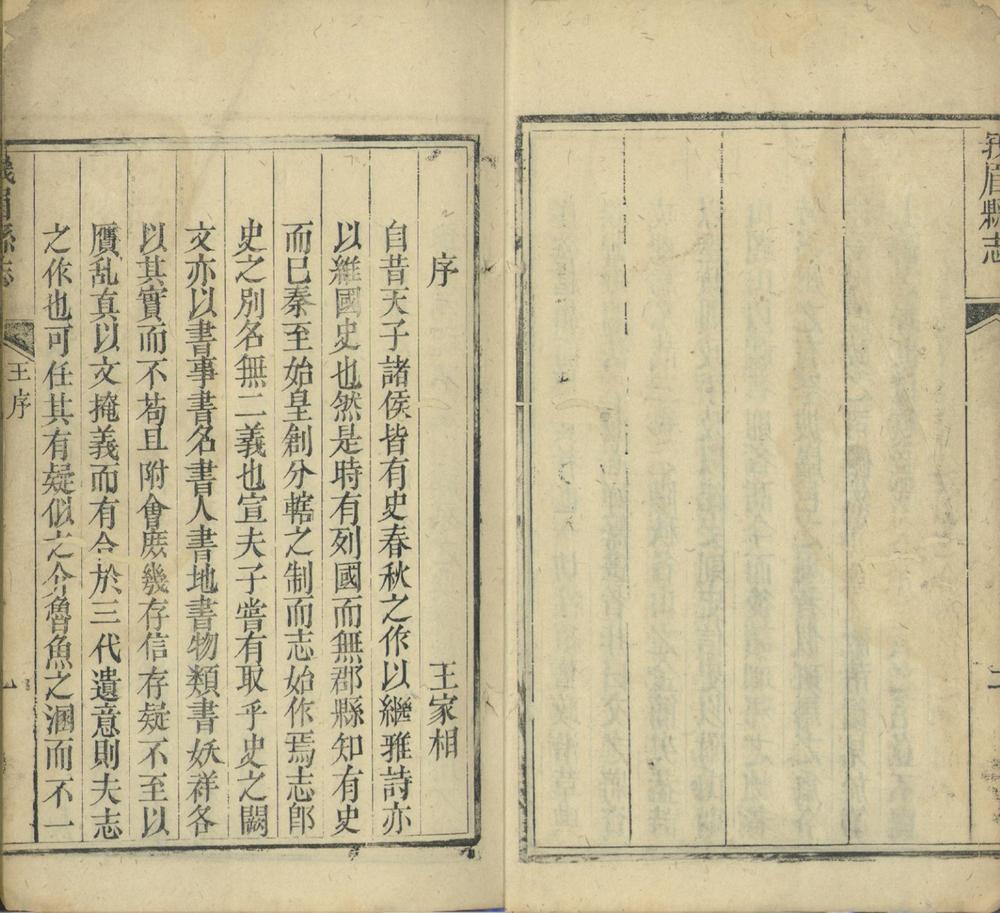 峩眉縣志
二
序
王家相
自昔天子諸侯皆有史春秋之作以繼雅詩亦
以維國史也然是時有列國而無郡縣知有史
而已秦至始皇創分轄之制而志始作焉志卽
史之別名無二義也宣夫子嘗有取乎史之闕
文亦以書事書名書人書地書物類書妖祥各
以其實而不苟且附會庶幾存信存疑不至以
贋乱真以文掩義而有合於三代遺意則夫志
之作也可任其有疑似之介魯魚之溷而不一
峩眉縣志
王序
一